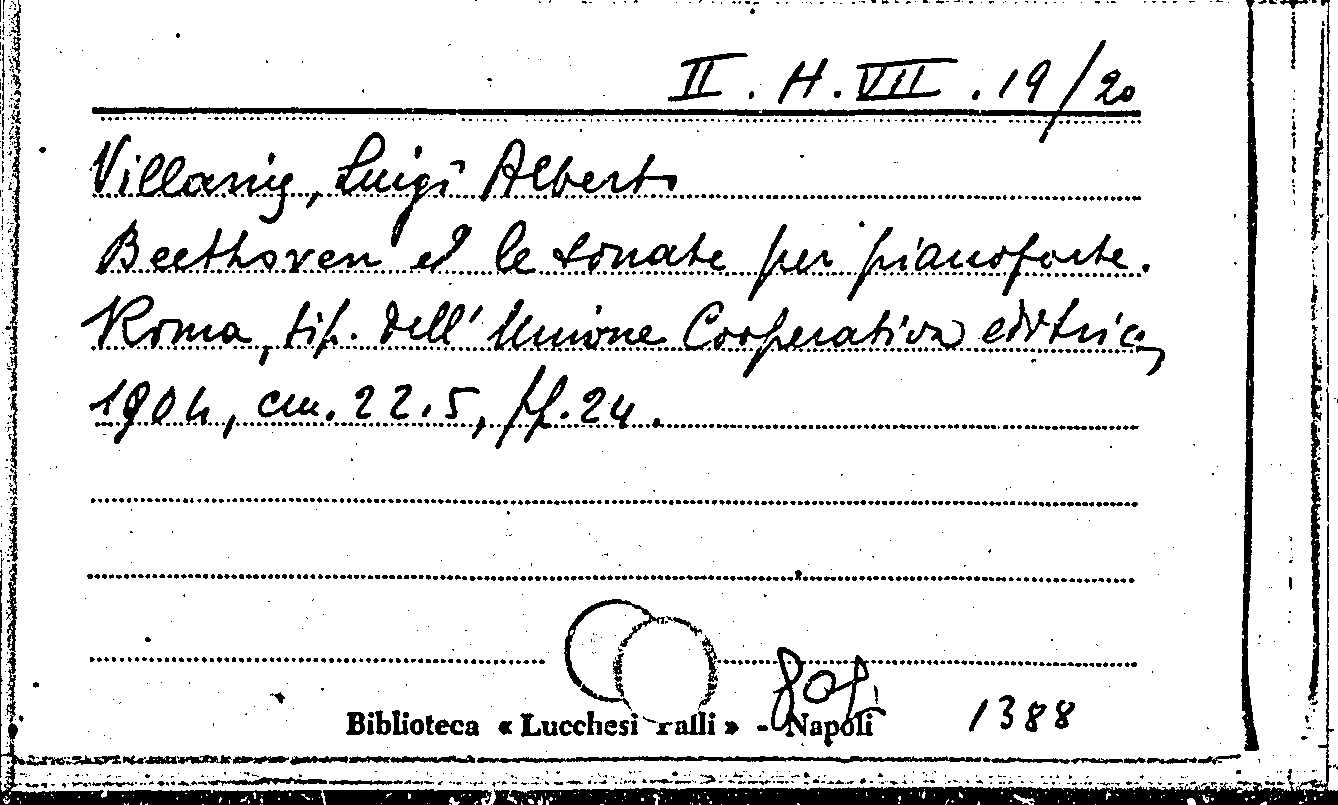 II. H. VII. 19/20
Villanis, Luigi Alberto
Beethoven e le sonate per pianoforte.
Roma, tip. dell' Unione Cooperativa editrice,
1904, cm. 22.5, pp. 24.
Biblioteca « Lucchesi Palli » - Napoli 1388